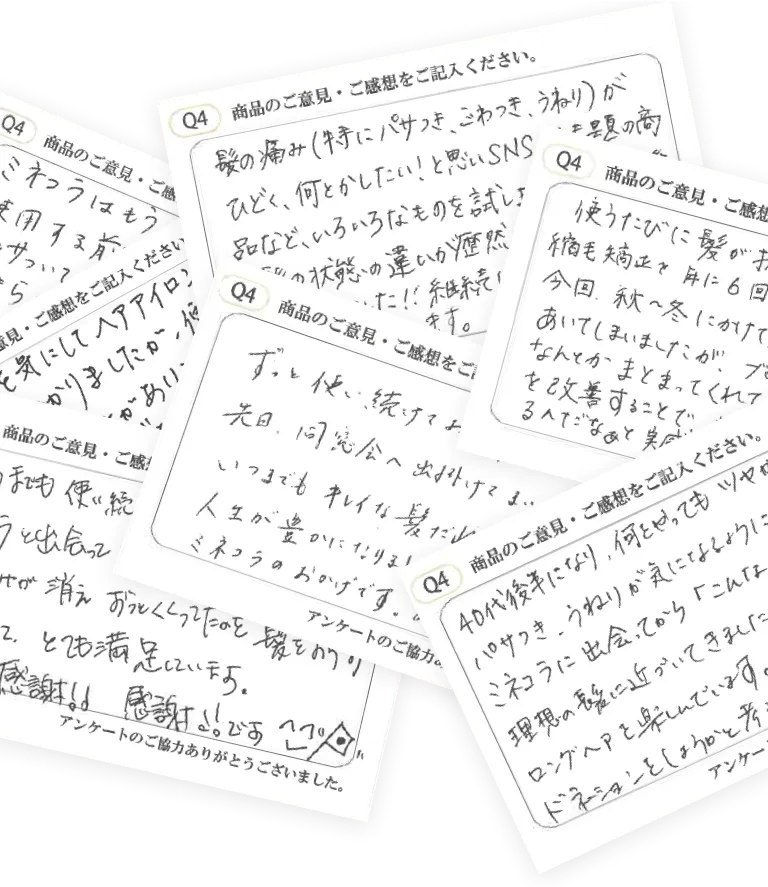 Q4
商品のご意見・ご感想をご記入ください。
髪の痛み(特にパサつき、ごわつき、うねり)が
ひどく、何とかしたい!と思いSNS
題の商
品など、いろいろなものを試し
の状態の違いが歴然
た!!継続
きます。
Q4
商品のご意見・ご感
ミネコラはもう
使用する前
サついて
ら
Q4
商品のご意見・ご感想
使うたびに髪が
縮毛矯正を年に6回
今回、秋〜冬にかけて
あいてしまいましたが、
なんとかまとまってくれて
を改善することで
るんだなぁと実感
意見・ご感想をご記入ください
を気にしてヘアアイロン
かりましたが、使
があい
Q4
商品のご意見・ご感想をご
ずっと使い続けて
先日、同窓会へ出掛けてま
いつまでもキレイな髪だ
人生が豊かになりまし
ミネコラのおかげです。
アンケートのご協力あ
商品のご意見・ご感想
までも使い続
と出会って
せが消え おっくくってたのを髪をおろ
て、とても満足しています。
感謝!! 感謝!!です
アンケートのご協力ありがとうございました。
Q4
商品のご意見・ご感想をご記入ください。
40代後半になり、何をやってもツヤや
パサつき、うねりが気になるように
ミネコラに出会ってから「こんな
理想の髪に近づいてきました
ロングヘアを楽しんでいます。
ドネーションをしようかと考
アンケー